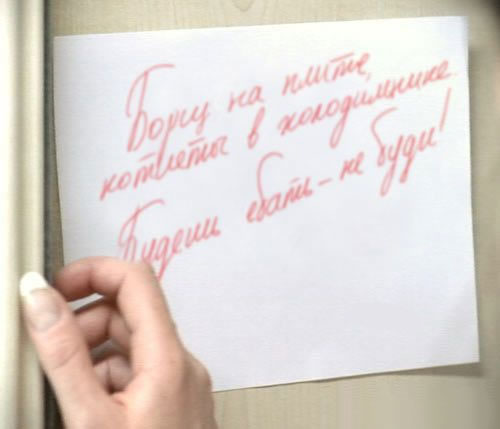 Борщ на плите,
котлеты в холодильнике.
Будешь ебать – не буди!